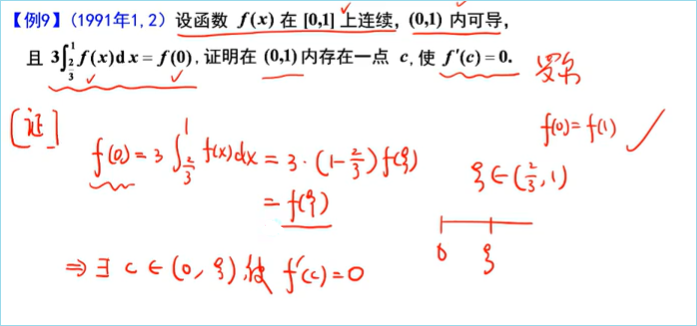 【例9】(1991年1,2) 设函数 f(x) 在 [0,1] 上连续，(0,1) 内可导，
且 3∫_{2/3}^{1} f(x)dx = f(0), 证明在 (0,1) 内存在一点 c, 使 f′(c) = 0.
罗尔
[证]
f(0) = f(1)
f(0) = 3∫_{2/3}^{1} f(x)dx = 3·(1-2/3)f(ξ)
ξ∈(2/3,1)
= f(ξ)
0 ξ
⇒∃ c∈(0,ξ),使 f′(c)=0